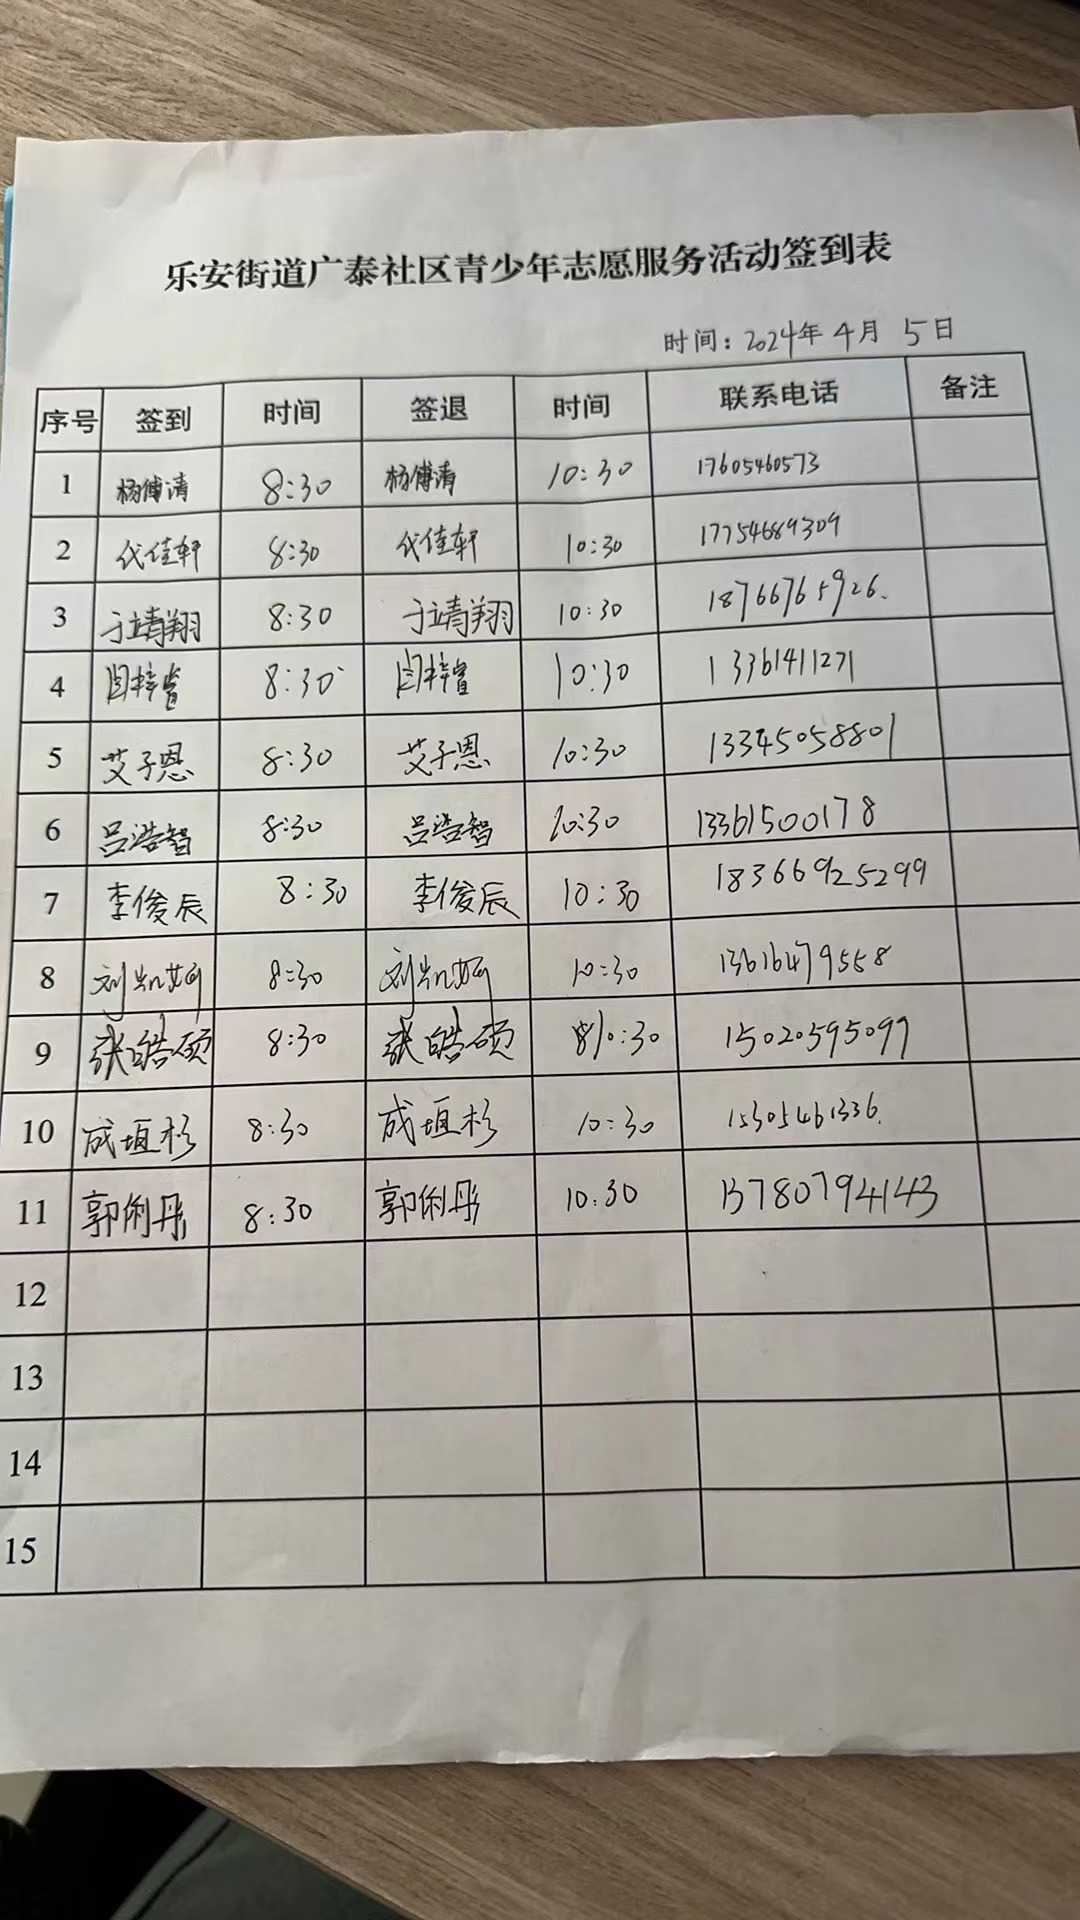 乐安街道广泰社区青少年志愿服务活动签到表
时间：2024年 4月 5日
序号 签到 时间 签退 时间 联系电话 备注
1 杨傅清 8:30 杨傅清 10:30 17605460573
2 代佳轩 8:30 代佳轩 10:30 17754689309
3 于靖翔 8:30 于靖翔 10:30 18766765926.
4 闫梓萱 8:30 闫梓萱 10:30 13361411271
5 艾子恩 8:30 艾子恩 10:30 13345058801
6 吕浩智 8:30 吕浩智 10:30 13361500178
7 李俊辰 8:30 李俊辰 10:30 18366925299
8 刘凯 8:30 刘凯 10:30 13616479558
9 张皓硕 8:30 张皓硕 10:30 15020595099
10 成垣杉 8:30 成垣杉 10:30 15305461336.
11 郭俐彤 8:30 郭俐彤 10:30 13780794143
12
13
14
15